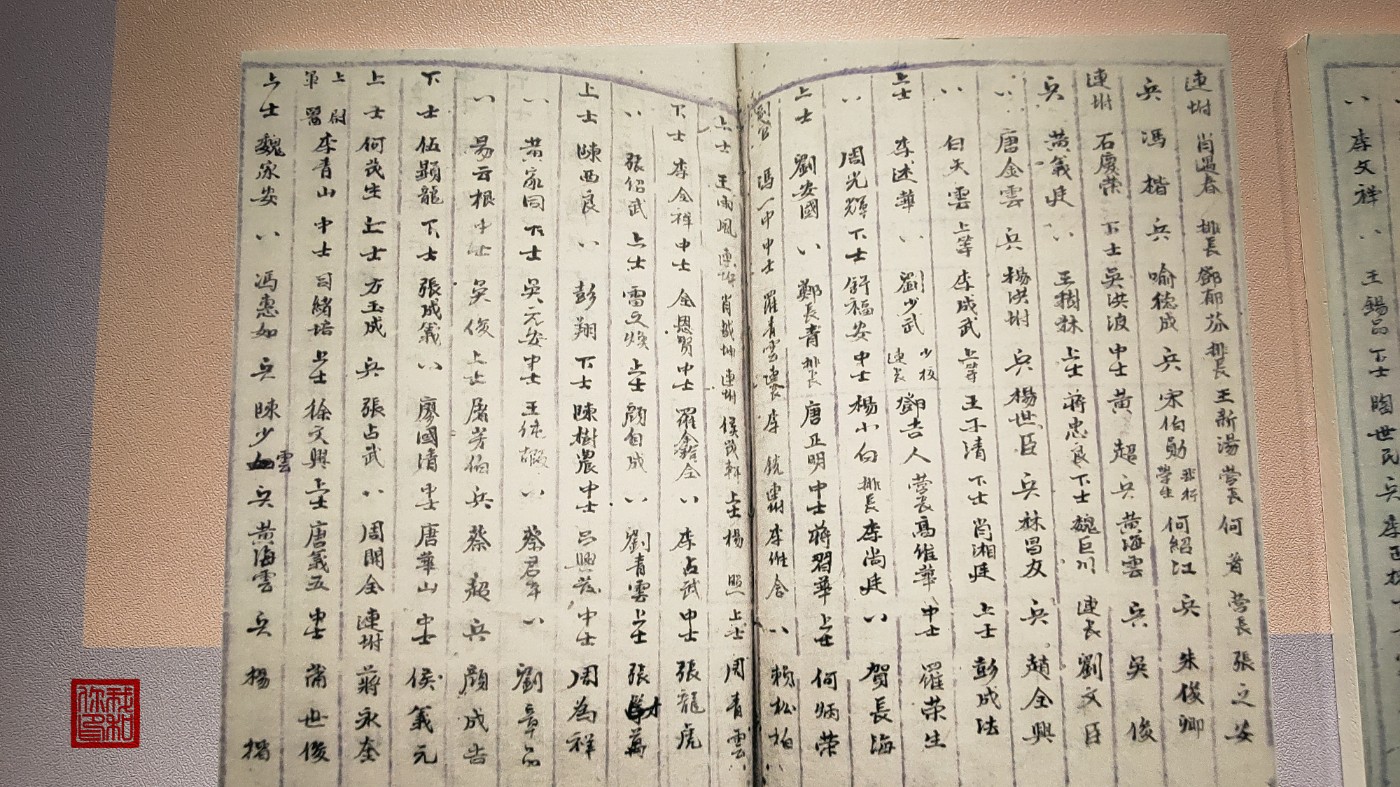 連坿 肖遇春 排長 鄧郁芬 排長 王新湯 營長 何首 營長 張之安
兵 馮楷 兵 喻德成 兵 宋伯勛 學生 何紹江 兵 朱俊卿
連坿 石慶榮 下士 吳洪波 中士 黃超 兵 黃海雲 兵 吳俊
兵 黃義廷 〃 王樹林 上士 蔣忠良 下士 魏巨川 連長 劉文臣
〃 唐金雲 兵 楊洪坿 兵 楊世臣 兵 林昌友 兵 趙全興
〃 白天雲 上等 李成武 上等 王不清 下士 肖湘廷 上士 彭成法
上士 李述華 〃 劉少武 少校連長 鄧吉人 營長 馮維華 中士 羅荣生
〃 周光輝 下士 舒福安 中士 楊小白 排長 李尚廷 〃 賀長海
上士 劉安國 〃 鄭長青 排長 唐正明 中士 蔣習華 上士 何炳榮
馮一中 中士 羅青雲 連長 李銑 連坿 李維含 〃 賴松柏 〃
上士 王雨風 連坿 肖 坿 連坿 侯 軒 上士 楊照 上士 周青雲 〃
下士 李全祥 中士 金恩賢 中士 羅金全 〃 李占武 中士 張龍虎
〃 張紹武 上士 雷文煥 上士 顧自成 〃 劉青雲 上士 張 萬
上士 陳西良 〃 彭翔 下士 陳樹農 中士 呂興發 中士 周為祥
〃 黃家同 下士 吳元安 中士 王純嘏 〃 蔡君年 〃 劉章品
〃 易云根 中士 吳俊 上士 屠芳伯 兵 蔡超 兵 顏成吉
下士 伍顯龍 下士 張成義 〃 廖國清 中士 唐華山 中士 侯義元
上士 何茂生 上士 方玉成 兵 張占武 〃 周開全 連坿 蔣永奎
上尉軍醫 李青山 中士 司緒培 上士 徐文興 上士 唐義五 中士 蒲世俊
上士 魏家安 〃 馮惠如 兵 陳少雲 兵 黃海雲 兵 楊楷
〃 李文祥 〃 王錫品 下士 陶世民 兵 李
我和你問